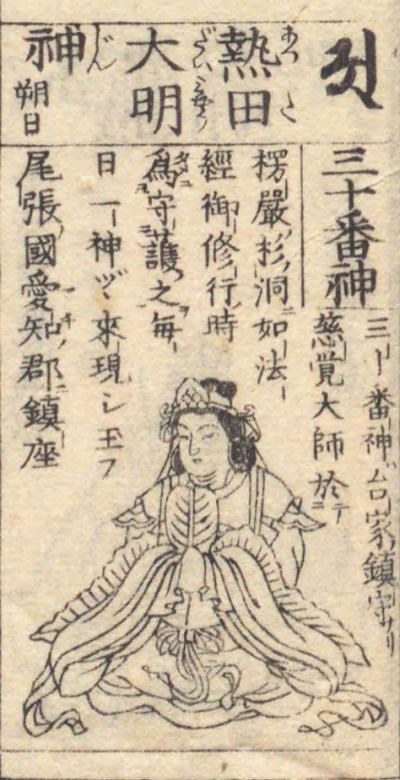 熱田
あつた
大明
神
じん
朔日
三十番神
三ー番神台家鎮守ナリ
慈覚大師於テ
楞嚴杉ノ洞如法ー
經御修行ノ時
爲守護之毎ー
日一神ヅヽ來現シ玉フ
尾張國愛知郡鎮座